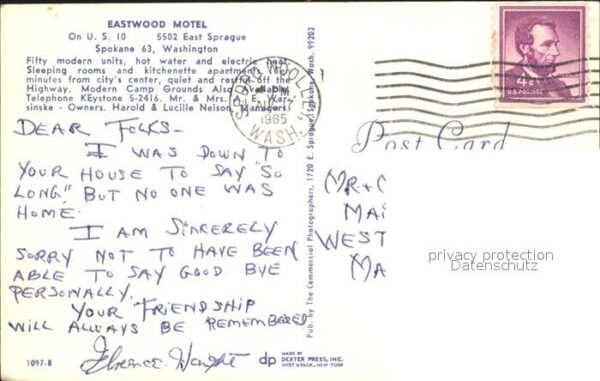 EASTWOOD MOTEL
On U. S. 10 5502 East Sprague
Spokane 63, Washington
Fifty modern units, hot water and electric heat.
Sleeping rooms and kitchenette apartments.
minutes from city's center, quiet and restful off the
Highway. Modern Camp Grounds Also Available.
Telephone KEystone 5-2416. Mr. & Mrs. E.
sinske - Owners. Harold & Lucille Nelson, Managers.
DEAR FOLKS-
I WAS DOWN TO
YOUR HOUSE TO SAY "SO
LONG," BUT NO ONE WAS
HOME.
I AM SINCERELY
SORRY NOT TO HAVE BEEN
ABLE TO SAY GOOD BYE
PERSONALLY.
YOUR FRIENDSHIP
WILL ALWAYS BE REMEMBERED
Florence
1097-B
dp
MADE BY
DEXTER PRESS, INC.
WEST NYACK, NEW YORK
Pub. by The Commercial Photographers, 1720 E. Sprague, Spokane, Wash. 99202
SEDRO WOOLLEY
PM
1965
WASH.
4¢
U.S. POSTAGE
Post Card
MR +
MAI
WEST
MA
privacy protection
Datenschutz